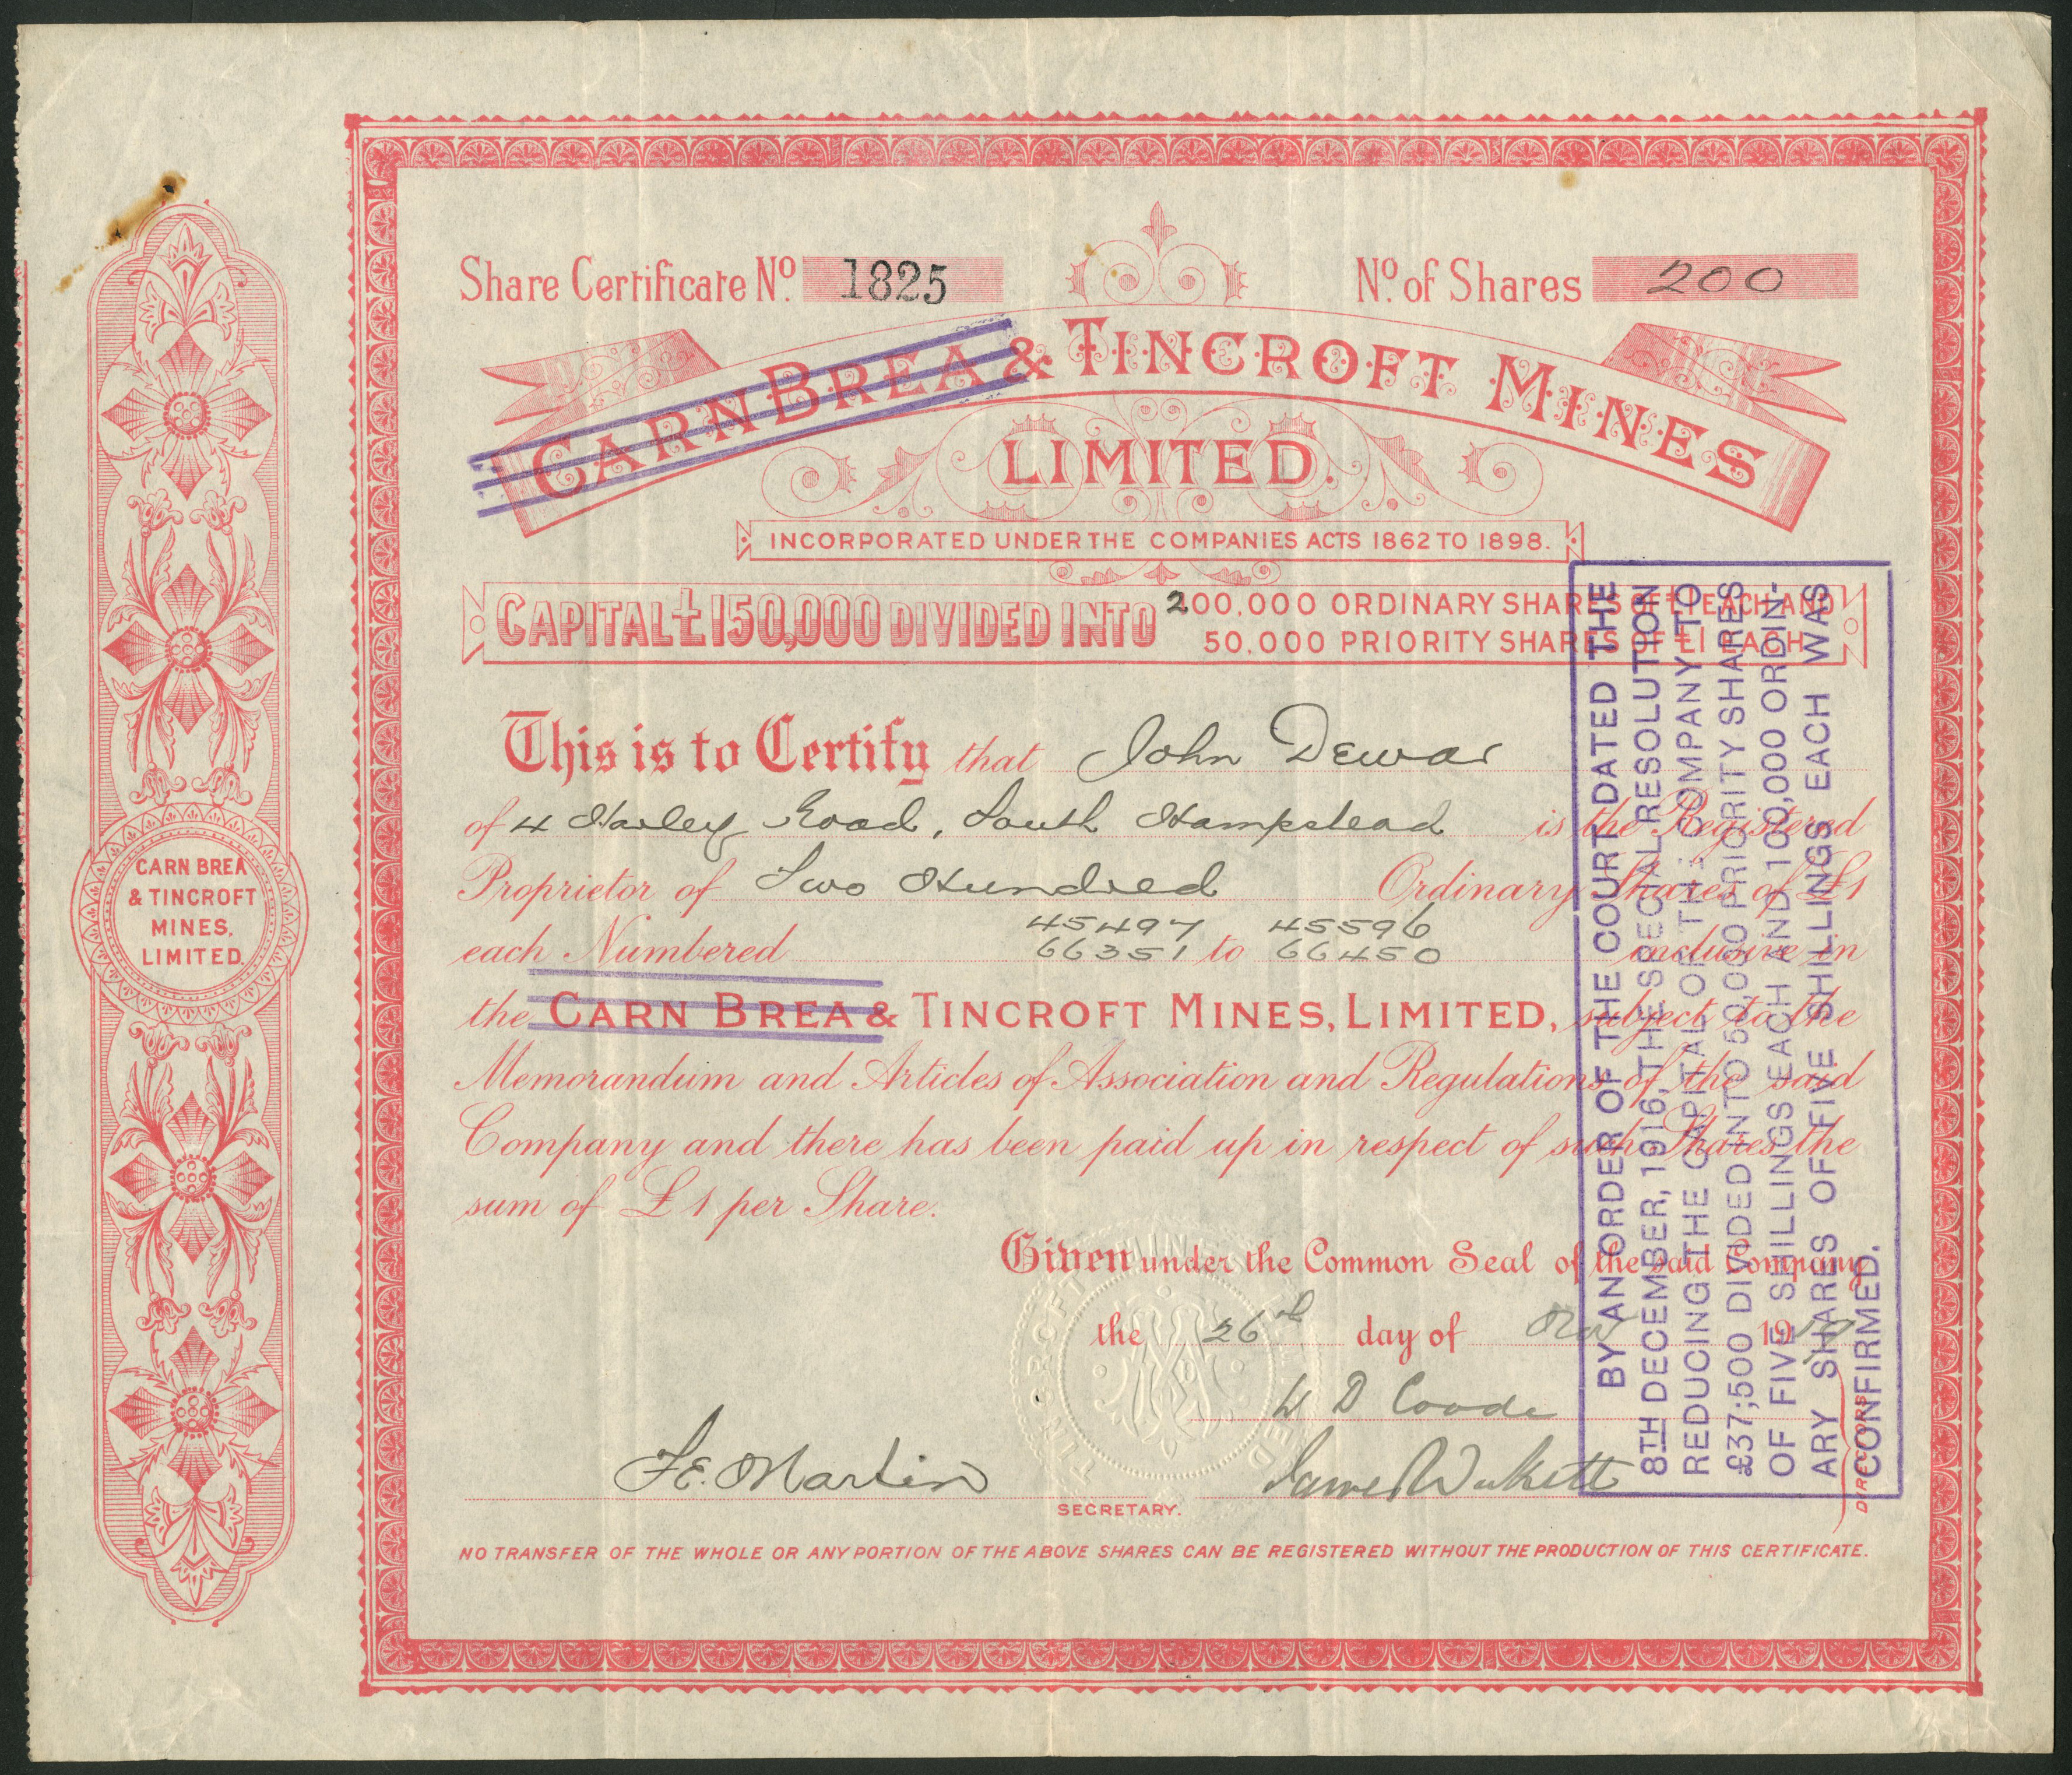 Share Certificate No. 1825
No. of Shares 200
CARN BREA & TINCROFT MINES
LIMITED.
INCORPORATED UNDER THE COMPANIES ACTS 1862 TO 1898.
CAPITAL £150,000 DIVIDED INTO
200,000 ORDINARY SHARES OF £1 EACH AND
50,000 PRIORITY SHARES OF £1 EACH
This is to Certify that John Dewar
of 4 Harley Road, South Hampstead is the Registered
Proprietor of Two Hundred Ordinary Shares of £1
45497 45596
each Numbered 66351 to 66450 inclusive in
the CARN BREA & TINCROFT MINES, LIMITED, subject to the
Memorandum and Articles of Association and Regulations of the said
Company and there has been paid up in respect of such Shares the
sum of £1 per Share.
Given under the Common Seal of the said Company
the 26th day of 19
W D Coode
F. E. Martin
James Wickett
SECRETARY.
DIRECTORS
NO TRANSFER OF THE WHOLE OR ANY PORTION OF THE ABOVE SHARES CAN BE REGISTERED WITHOUT THE PRODUCTION OF THIS CERTIFICATE.
CARN BREA
& TINCROFT
MINES,
LIMITED.
BY AN ORDER OF THE COURT DATED THE
8TH DECEMBER, 1916, THE SPECIAL RESOLUTION
REDUCING THE CAPITAL OF THE COMPANY TO
£37,500 DIVIDED INTO 50,000 PRIORITY SHARES
OF FIVE SHILLINGS EACH AND 100,000 ORDIN-
ARY SHARES OF FIVE SHILLINGS EACH WAS
CONFIRMED.